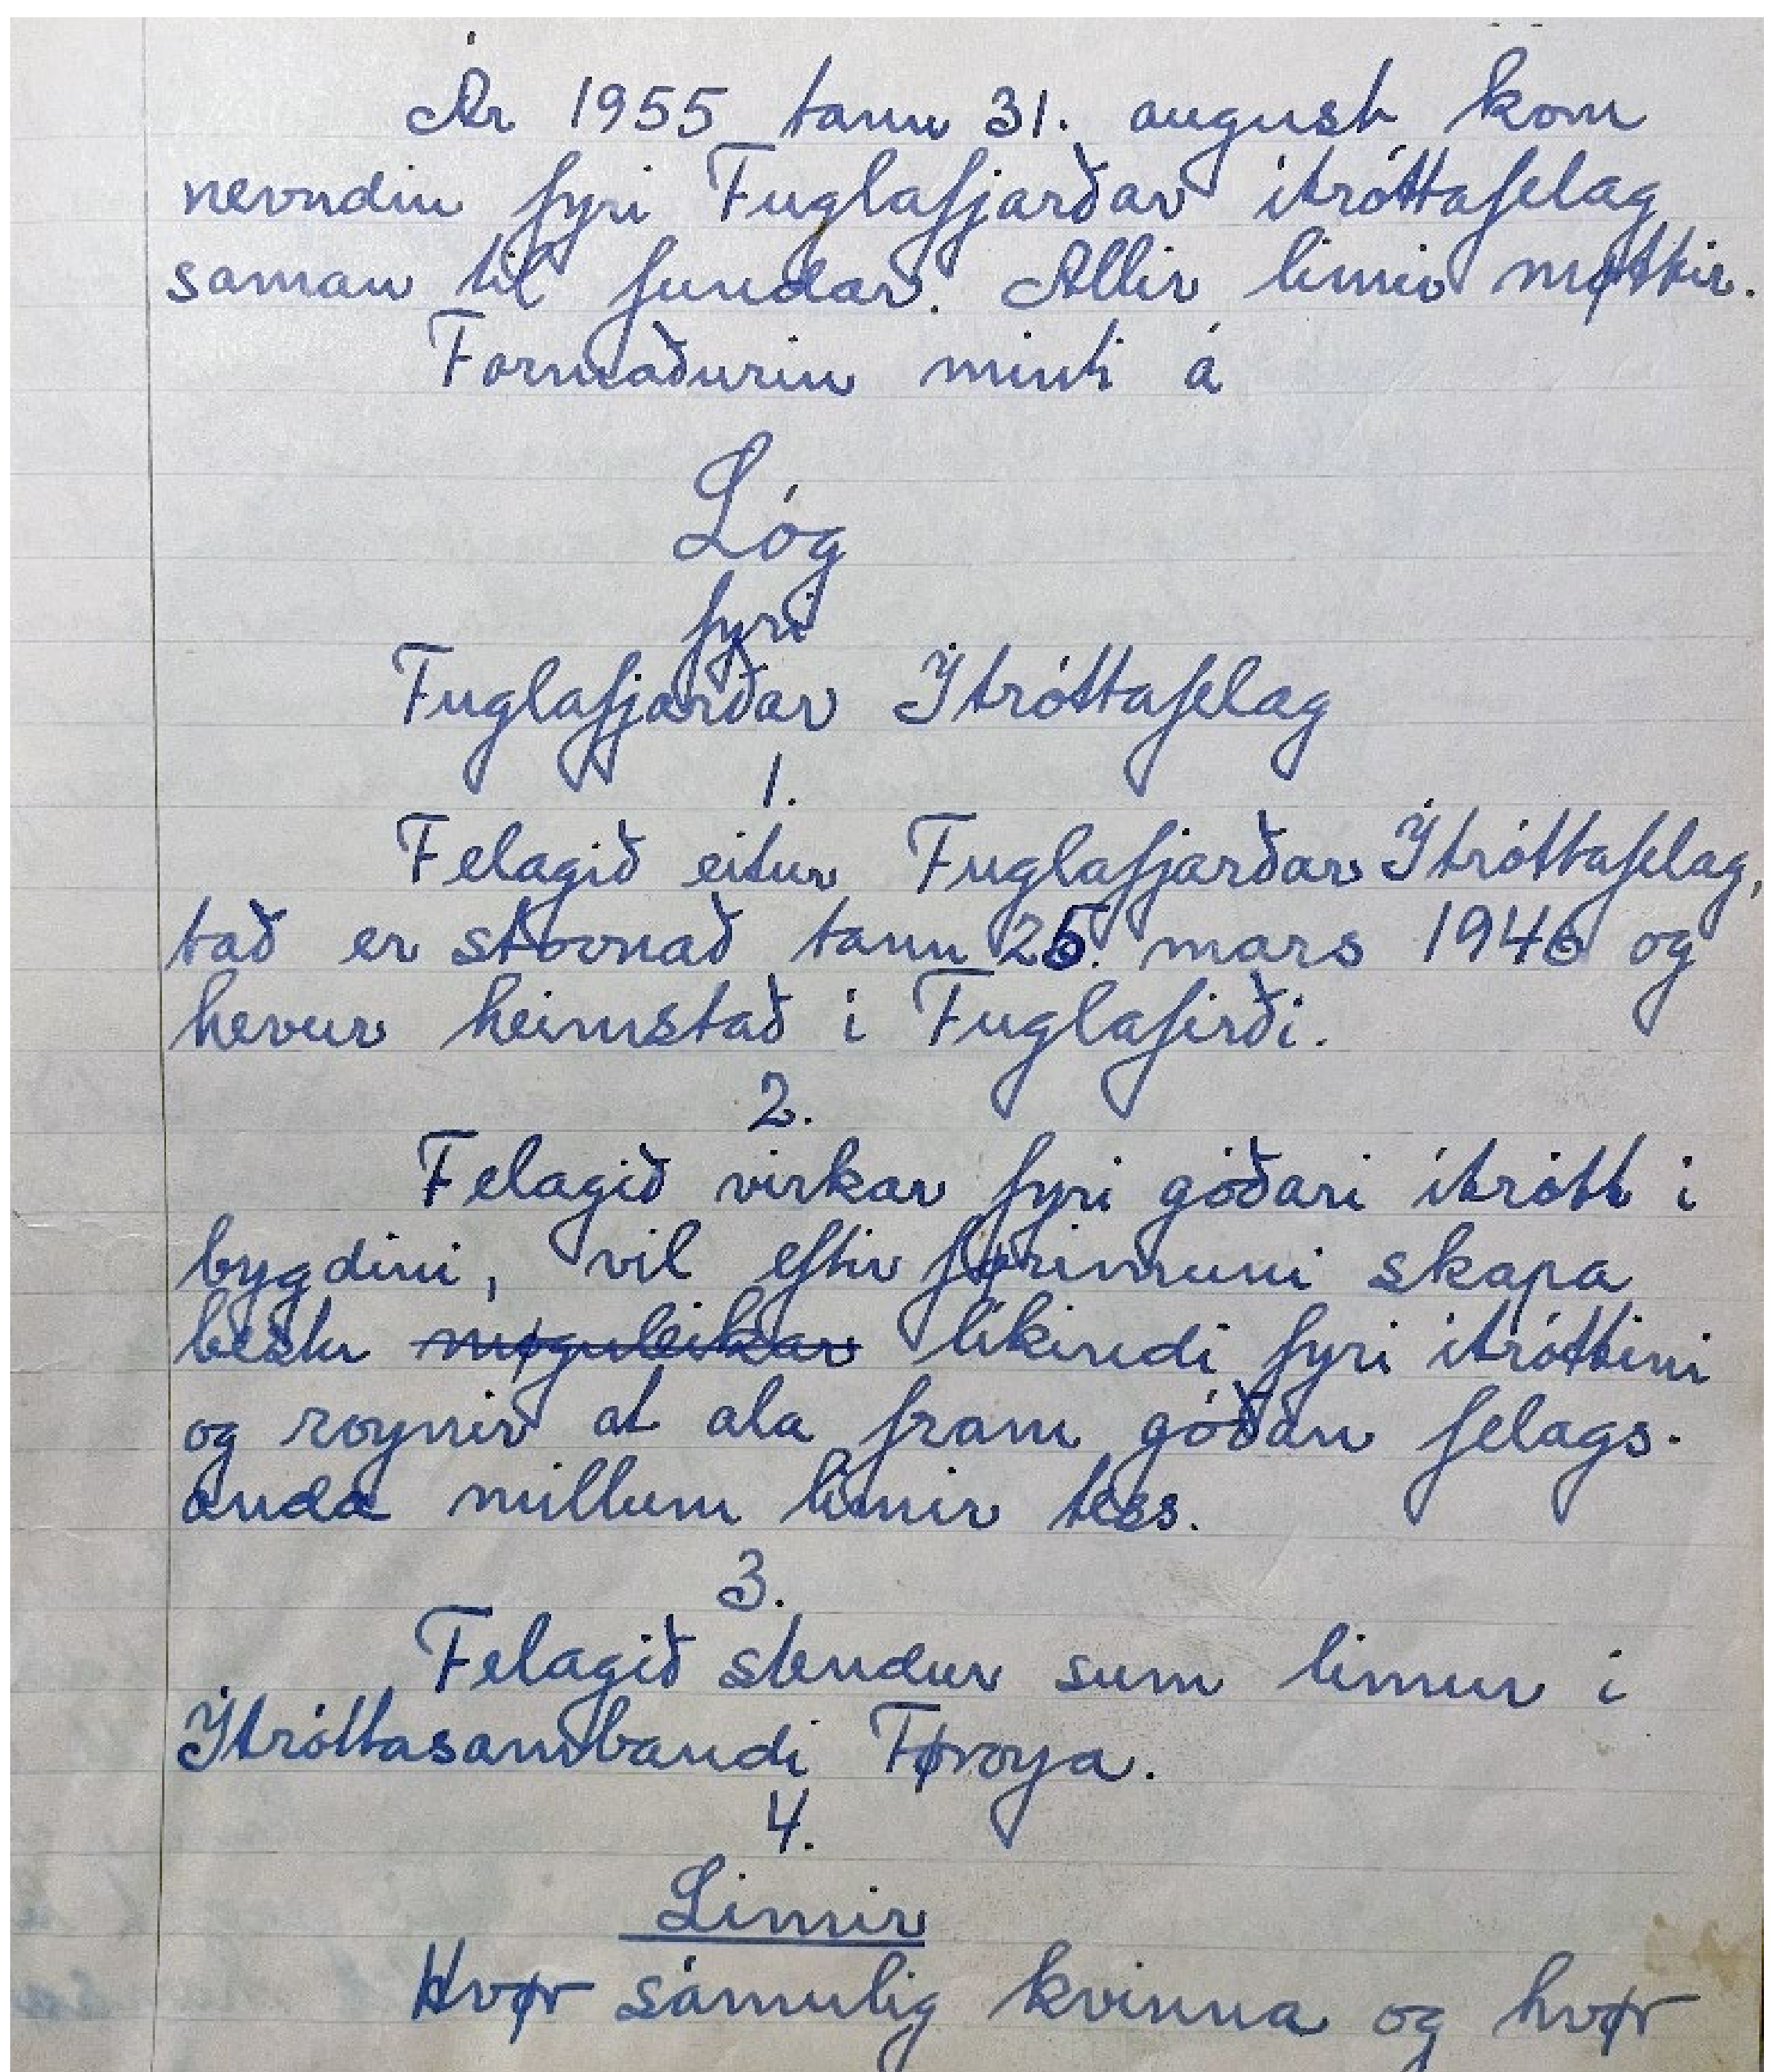 Ár 1955 tann 31. august kom
nevndin fyri Fuglafjarðar ítróttafelag
saman til fundar. Allir limir møttir.
Formaðurin minti á
Lóg
fyri
Fuglafjarðar Ítróttafelag
1.
Felagið eitur Fuglafjarðar Ítróttafelag,
tað er stovnað tann 25. mars 1946 og
hevur heimstað i Fuglafirði.
2.
Felagið virkar fyri góðari ítrótt i
bygdini, vil eftir førimuni skapa
bestu møguleikar líkindi fyri ítróttini
og roynir at ala fram góðan felags-
anda millum limir tess.
3.
Felagið stendur sum limur i
Ítróttasambandi Føroya.
4.
Limir
Hvør sámulig kvinna og hvør